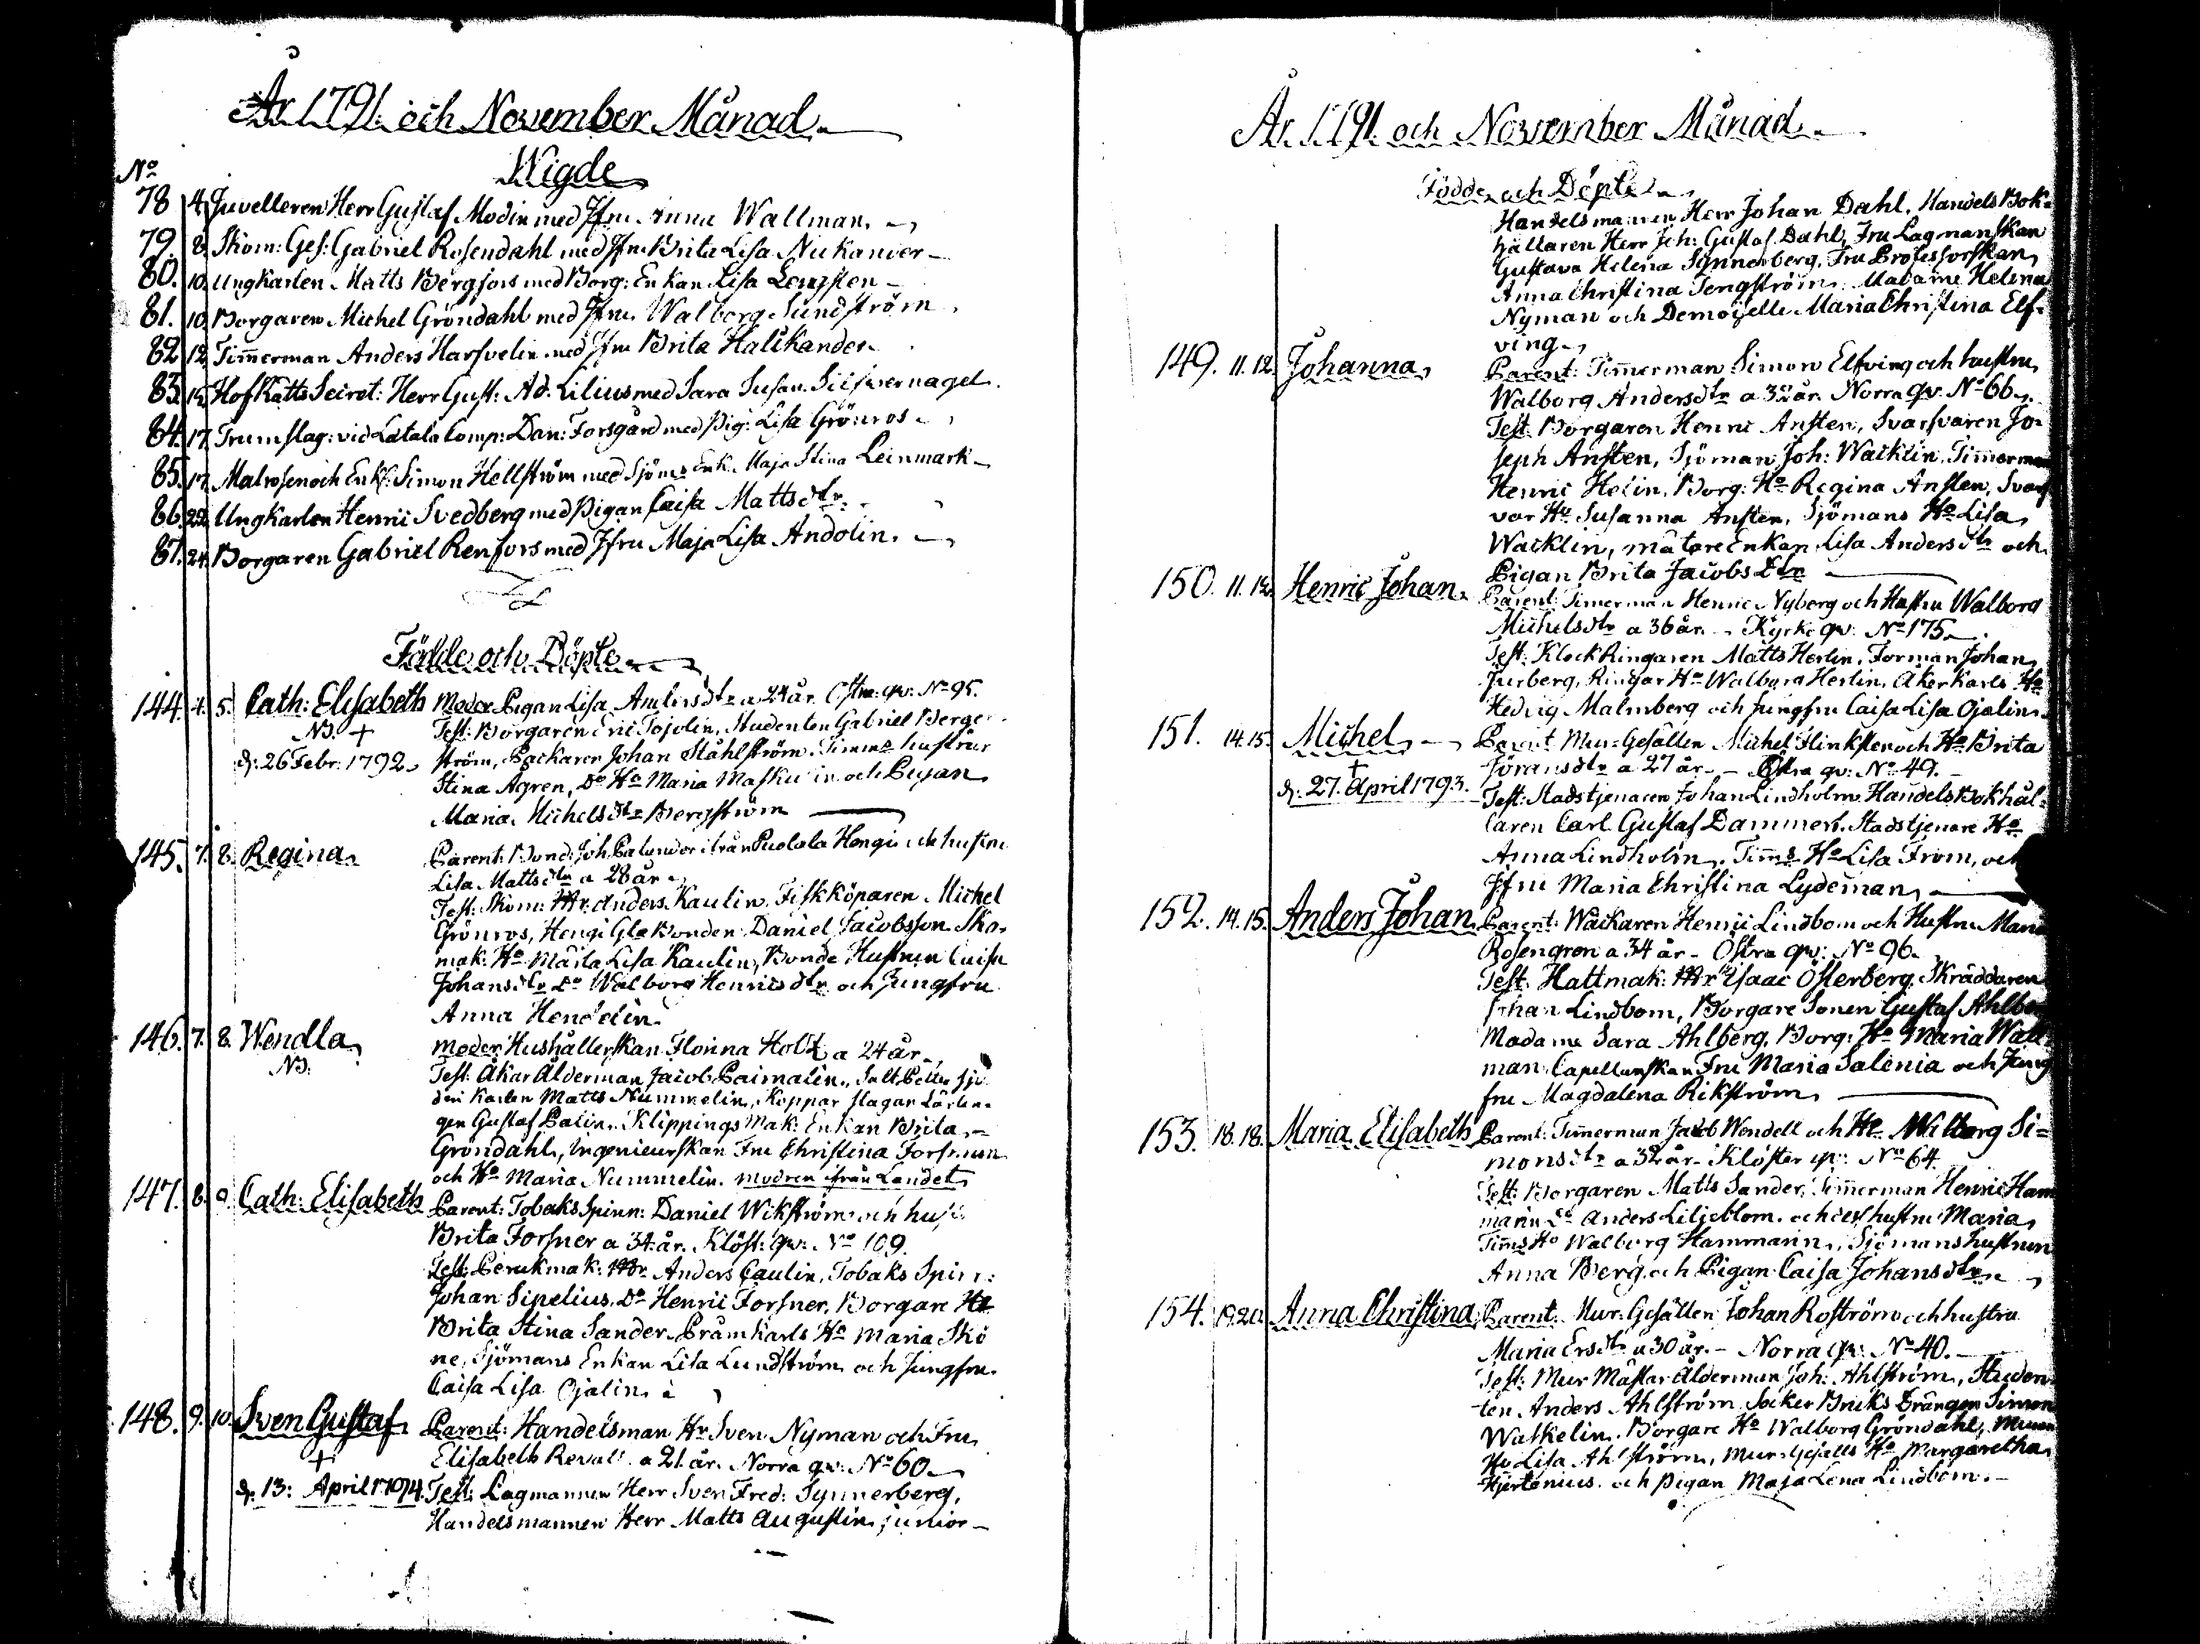 År 1791. och November Månad.
Wigde
No
78 4. Juvelleren Herr Gustaf Modin med Jfru Anna Wallman.
79. 8. Skom: Ges: Gabriel Rosendahl med Jfru Brita Lisa Nickander
80. 10. Ungkarlen Matts Bergfors med Borg: Enkan Lisa
81. 10. Borgaren Michel Gröndahl med Jfru Walborg Sundström
82 12. Timmerman Anders Harfvelin med Jfru Brita
83. 15. HofRätts Secret: Herr Gust: Ad. Lilius med Sara Susan: Silfvernagel.
84. 17. Trumslag: vid Letala Comp: Dan: Forsgård med Pig: Lisa Grönros
85. 17. Matrosen och Enkl: Simon Hellström med Sjöms Enk: Maja Stina Leinmark
86. 22. Ungkarlen Henric Svedberg med Pigan Caisa Mattsdtr
87. 24. Borgaren Gabriel Renfors med Jfru Maja Lisa Andolin.
Födde och Döpte
144. 4. 5. Cath: Elisabeth Moder Pigan Lisa Andersdtr a 24 år. Östra: qv: No 95.
NB. + Test: Borgaren Eric Tojolin, Studenten Gabriel Berger
d: 26 Febr: 1792 ström, Packaren Johan Stählström. Timms hustrur
Stina Agren, Do Ho Maria Maskulin och Pigan
Maria Michelsdtr Bergström
145. 7. 8. Regina Parent: Bond: Joh: Palander ifrån Puolala Hengi och hustru
Lisa Mattsdtr a 28 år
Test: Skom: Mr. Anders Kaulin. Fiskköparen Michel
Grönros, Hengi Bonden Daniel Jacobsson. Sko
mak: Ho Märta Lisa Kaulin, Bonde Hustrun Caisa
Johansdtr Do Walborg Henricsdtr och Jungfru
Anna Hendelin
146. 7. 8. Wendla Moder Hushållerskan Florina Holtz a 24 år
NB. Test: Åkar Ålderman Jacob Paimalin, Salt Petter Sju
deri Karlen Matts Nummelin, Koppar slagar Lärlin
gen Gustaf Palin. Klippings Mak: Enkan Brita
Gröndahl, Ingenieurskan Fru Christina Forsman
och Ho Maria Nummelin. modren ifrån Landet
147. 8. 9. Cath: Elisabeth Parent: Tobaks Spinn: Daniel Wikström och hust:
Brita Forsner a 34 år. Klöst: qv: No 109.
Test: Perukmak: Mr Anders Caulin, Tobaks Spinn:
Johan Sipelius, Do Henric Forsner, Borgare Ho
Brita Stina Sander. Pråmkarls Ho Maria Skö
ne, Sjömans Enkan Lisa Lundström och Jungfru
Caisa Lisa Ojalin
148. 9. 10. Sven Gustaf Parent: Handelsman Hr Sven Nyman och Fru
+ Elisabeth Revall a 21 år. Norra qv: No 60
d. 13: April 1794. Test: Lagmannen Herr Sven Fred: Synnerberg,
Handelsmannen Herr Matts Augustin junior
År 1791. och November Månad.
Födde och Döpte
Handelsmannen Herr Johan Dahl, Handels Bok=
hållaren Herr Joh: Gustaf Dahl, Fru Lagmanskan
Gustava Helena Synnerberg, Fru Professorskan
Anna Christina Tengström, Madame Helena
Nyman och Demoiselle Maria Christina Elf=
ving
149. 11. 12. Johanna Parent: Timmerman Simon Elfving och hustru
Walborg Andersdtr a 32 år. Norra qv. No 66
Test. Borgaren Henric Ansten, Svarfvaren Jo
seph Ansten, Sjöman Joh: Wacklin, Timmerman
Henric Helin, Borg: Ho Regina Ansten, Svarf
var Ho Susanna Ansten, Sjömans Ho Lisa
Wacklin, mätare Enkan Lisa Andersdtr och
Pigan Brita Jacobs Dtr
150. 11. 12. Henric Johan Parent: Timerman Henric Nyberg och Hustru Walborg
Michelsdtr a 36 år. Kyrko qv: No 175
Test: Klock Ringaren Matts Herlin, Forman Johan
Jurberg, Ringar Ho Walborg Herlin, Åkerkarls Ho
Hedvig Malmberg och Jungfru Caisa Lisa Ojalin
151. 14. 15. Michel Parent: Mur=Gesällen Michel Flinksten och Ho Brita
+ Jöransdtr a 27 år. Östra qv: No 49.
d: 27. April 1793. Test: Stadstjenaren Johan Lindholm, Handels Bokhål=
laren Carl Gustaf Dammert, Stadstjenare Ho
Anna Lindholm, Timms Ho Lisa From, och
Jfru Maria Christina Lydeman
152. 14. 15. Anders Johan Parent: Wacktaren Henric Lindbom och Hustru Maria
Rosengren a 34 år. Östra qv: No 96.
Test. Hattmak: Mr Isaac Österberg, Skräddaren
Johan Lindbom, Borgare Sonen Gustaf
Madame Sara Ahlberg, Borg: Ho Maria Wall
man. Capellanskan Fru Maria Salenia och Jung
fru Magdalena Rikström
153. 18. 18. Maria Elisabeth Parent: Timmerman Jacob Wendell och Ho Walborg Si=
monsdtr a 32 år. Kloster qv: No 64.
Test: Borgaren Matts Sander, Timmerman Henric Ham
marin Do Anders Liljeblom. och dess hustru Maria
Timms Ho Walborg Hammarin, Sjömanshustrun
Anna Berg och Pigan Caisa Johansdtr
154. 19. 20. Anna Christina Parent: Mur: Gesällen Johan Roström och hustru
Maria Ersdtr a 30 år. Norra qv: No 40.
Test: Mur Mästar Ålderman Joh: Ahlström, Studen
ten Anders Ahlström Socker Bruks Drängen Simon
Walkelin. Borgare Ho Walborg Gröndahl,
Ho Lisa Ahlström, Mur Gesälls Ho Margaretha
Hjertenius. och Pigan Maja Lena Lindbom.